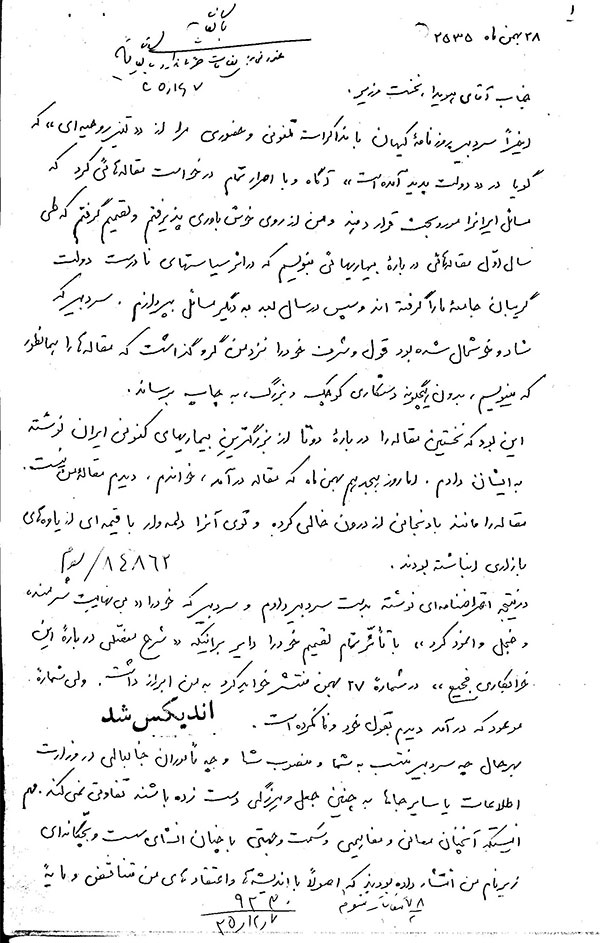 ۱
۲۸ بهمن ماه ۲۵۳۵
جناب آقای هویدا، نخست وزیر.
اخیراً سردبیر روزنامهٔ کیهان با مذاکرات تلفونی و حضوری مرا از «تغییر روحیه‌ای» که
گویا در «دولت پدید آمده است» آگاه و با اصرار تمام درخواست مقاله‌هائی کرد که
مسائل ایرانرا مورد بحث قرار دهد و من از روی خوش باوری پذیرفتم و تصمیم گرفتم که طی
سال اوّل مقاله‌هائی دربارهٔ بیماریهائی بنویسم که در اثر سیاستهای نادرست دولت
گریبان جامعهٔ ما را گرفته اند و سپس در سال بعد به دیگر مسائل بپردازم. سردبیر که
شاد و خوشحال شده بود قول و شرف خود را نزد من گرو گذاشت که مقاله‌ها را همانطور
که مینویسم، بدون هیچگونه دستکاری کوچک و بزرگ، به چاپ برساند.
این بود که نخستین مقاله را دربارهٔ دوتا از بزرگترین بیماریهای کنونی ایران نوشته
به ایشان دادم. اما روز هیجدهم بهمن ماه که مقاله درآمد، خواندم، دیدم مقالهٔ من نیست.
مقاله را مانند بادنجانی از درون خالی کرده و توی آنرا دلمه‌وار با قیمه‌ای از یاوه‌های
بازاری انباشته بودند.
۸۴۸۶۲/
در نتیجه اعتراضنامه‌ای نوشته بدست سردبیر دادم و سردبیر که خود را «بی نهایت شرمنده
و خجل وانمود کرد» با تأثر تمام تصمیم خود را دایر برانیکه «شرح مفصّلی دربارهٔ این
خرابکاری فجیع» در شمارهٔ ۲۷ بهمن منتشر خواهد کرد به من ابراز داشت. ولی شمارهٔ
موعود که درآمد دیدم بقول خود وفا نکرده است.
اندیکس شد
بهرحال چه سردبیر منتسب به شما و منصوب شما و چه مأموران جنابعالی در وزارت
اطلاعات یا سایر جاها به چنین جعل و هرزگی دست زده باشند تفاوتی نمی کند. مهم
اینستکه آنچنان معانی و مفاهیمی و سمت و جهتی با چنان انشای سست و بچگانه‌ای
زیر نام من انتشار داده بودید که اصولاً با اندیشه‌ها و اعتقادهای من متناقض و مایهٔ